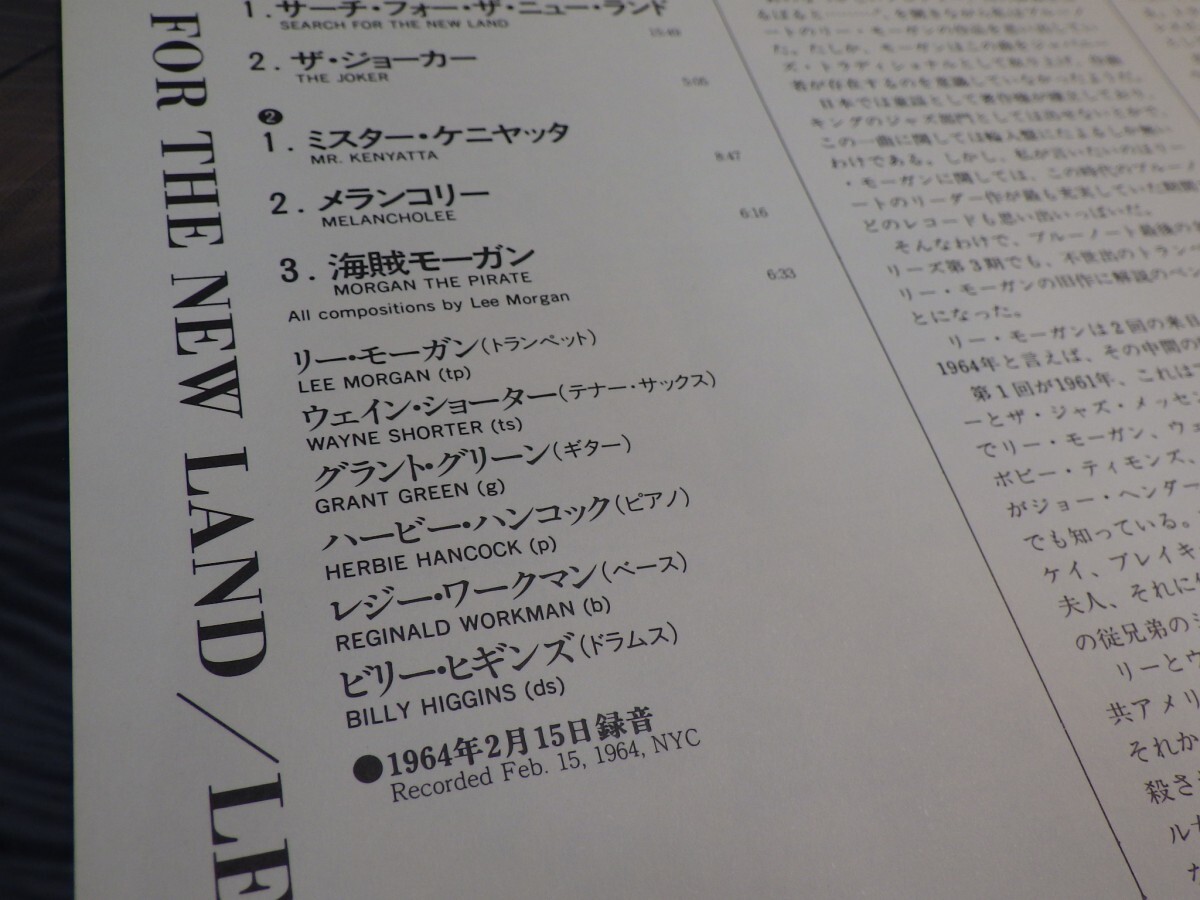 FOR THE NEW LAND/LE
1.サーチ・フォー・ザ・ニュー・ランド
SEARCH FOR THE NEW LAND
15:49
2.ザ・ジョーカー
THE JOKER
5:05
❷
1.ミスター・ケニヤッタ
MR. KENYATTA
8:47
2.メランコリー
MELANCHOLEE
6:16
3.海賊モーガン
MORGAN THE PIRATE
6:33
All compositions by Lee Morgan
リー・モーガン(トランペット)
LEE MORGAN (tp)
ウェイン・ショーター(テナー・サックス)
WAYNE SHORTER (ts)
グラント・グリーン(ギター)
GRANT GREEN (g)
ハービー・ハンコック(ピアノ)
HERBIE HANCOCK (p)
レジー・ワークマン(ベース)
REGINALD WORKMAN (b)
ビリー・ヒギンズ(ドラムス)
BILLY HIGGINS (ds)
●1964年2月15日録音
Recorded Feb. 15, 1964, NYC
ートのリー・モーガンの作品を思い出してい
た。たしか、モーガンはこの曲をジャパニー
ズ・トラディショナルとして取り上げ、作曲
者が存在するのを意識していなかったようだ。
日本では童謡として著作権が確立しており、
キングのジャズ部門としては出せないとかで、
この一曲に関しては輸入盤にたよるしか無い
わけである。しかし、私が言いたいのはリー
・モーガンに関しては、この時代のブルーノ
ートのリーダー作が最も充実していた期間
どのレコードも思い出いっぱいだ。
そんなわけで、ブルーノート最後の
リーズ第3期でも、不世出のトラン
リー・モーガンの旧作に解説のペン
とになった。
リー・モーガンは2回の来日
1964年と言えば、その中間の
第1回が1961年、これは
ーとザ・ジャズ・メッセン
でリー・モーガン、ウェ
ボビー・ティモンズ、
がジョー・ヘンダー
でも知っている。
ケイ、ブレイキ
夫人、それに
の従兄弟の
リーとウ
共アメリ
それか
殺さ
ル